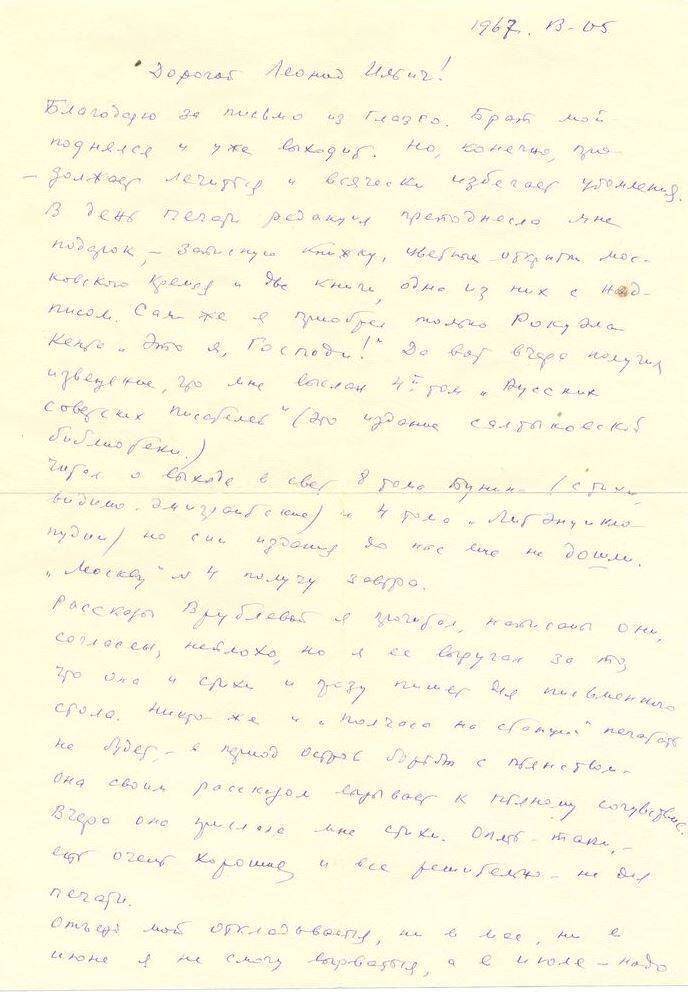 1967. В-05
Дорогой Леонид Ильич!
Благодарю за письмо из Глазго. Брат мой
поднялся и уже выходит. Но, конечно, про-
должает лечиться и всячески избегает утомления.
В день печати редакция преподнесла мне
подарок, – записную книжку, цветные открытки мос-
ковского Кремля и две книги, одна из них с над-
писом. Сам же я приобрел только Рокуэла
Кента „Это я, Господи!" Да вот вчера получил
извещение, что мне выслан 4й том „Русских
советских писателей" (это издание салтыковской
библиотеки.)
Читал о выходе в свет 8 тома Бунина (стихи,
видимо, эмигрантские) и 4 тома „Литэнцикло-
пудии) но сии издания до нас еще не дошли.
„Москву" № 4 получу завтра.
Рассказы Врублевой я прочитал, написаны они,
согласен, неплохо, но я ее выругал за то,
что она и стихи и прозу пишет для письменного
стола. Никто же и „Полчаса на станции" печатать
не будет, – в период острой борьбы с пьянством
она своим рассказом взывает к пьяному сочувствие.
Вчера она прислала мне стихи. Опять-таки, –
есть очень хорошие, и все решительно – не для
печати.
Отъезд мой откладывается, ни в мае, ни в
июне я не смогу вырваться, а в июле – надо